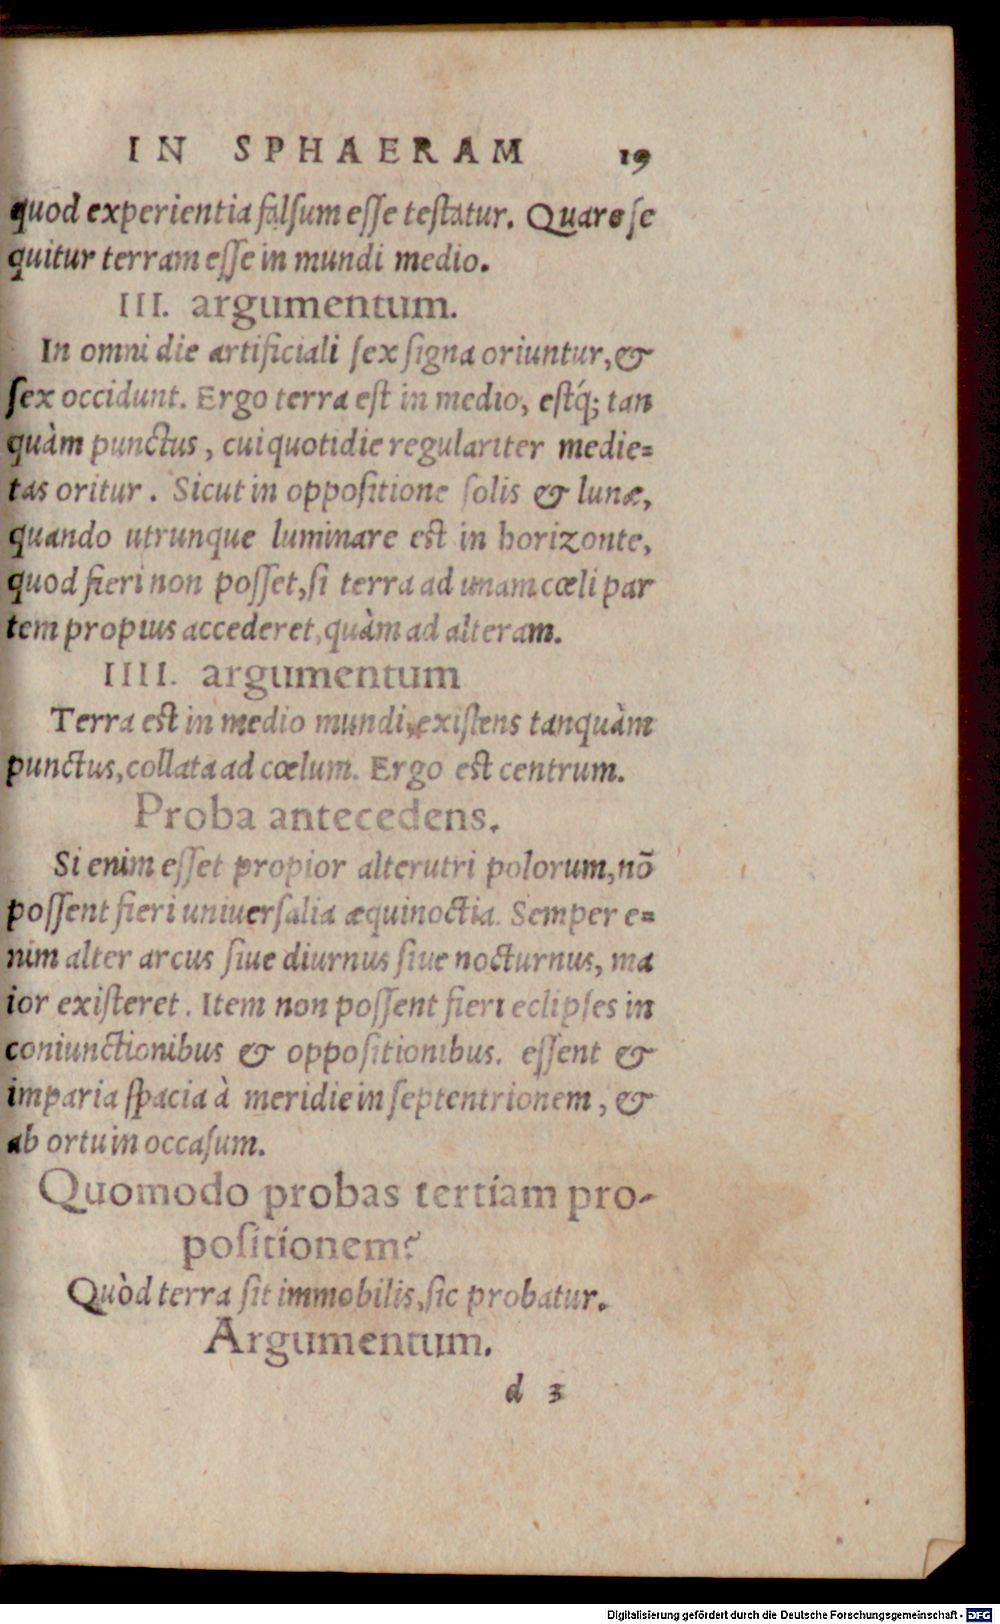 IN SPHAERAM 19
quod experientia falsum esse testatur. Quare se
quitur terram esse in mundi medio.
III. argumentum.
In omni die artificiali sex signa oriuntur, &
sex occidunt. Ergo terra est in medio, estq́; tan
quàm punctus, cui quotidie regulariter medie=
tas oritur. Sicut in oppositione solis & lunæ,
quando utrunque luminare est in horizonte,
quod fieri non posset, si terra ad unam cœli par
tem propius accederet, quàm ad alteram.
IIII. argumentum
Terra est in medio mundi, existens tanquàm
punctus, collata ad cœlum. Ergo est centrum.
Proba antecedens.
Si enim esset propior alterutri polorum, nõ
possent fieri universalia æquinoctia. Semper e=
nim alter arcus siue diurnus siue nocturnus, ma
ior existeret. Item non possent fieri eclipses in
coniunctionibus & oppositionibus. essent &
imparia spacia à meridie in septentrionem, &
ab ortu in occasum.
Quomodo probas tertiam pro-
positionem?
Quòd terra sit immobilis, sic probatur.
Argumentum.
d 3
Digitalisierung gefördert durch die Deutsche Forschungsgemeinschaft - DFG